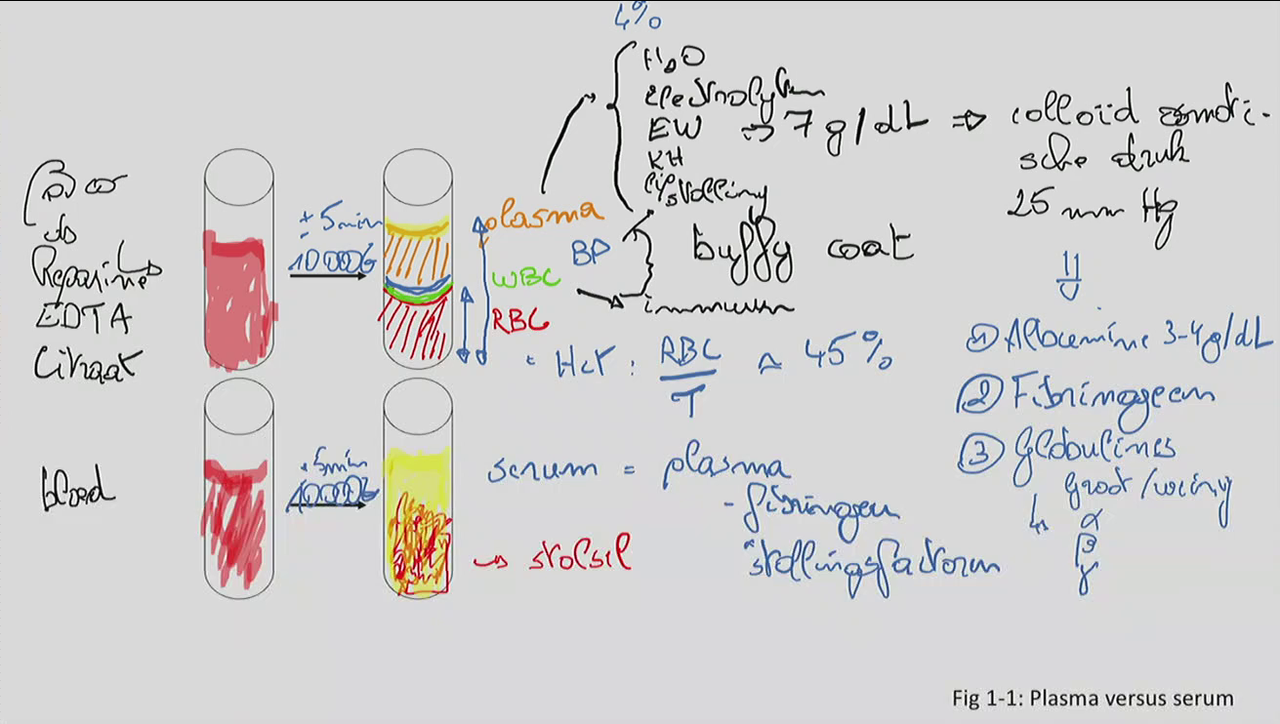 4%
H2O
electrolyten
EW ⇒ 7 g/dL ⇒ colloïd osmoti-
sche druk
25 mm Hg
KH
stolling
± 5min
10000G
Heparine
EDTA
Citraat
plasma
BP
buffy coat
WBC
immuun
RBC
Hct : RBC/T ≈ 45%
① Albumine 3-4g/dL
② Fibrinogeen
③ Globulines
groot/weinig
↳ α
β
γ
bloed
± 5min
10000G
serum = plasma
- fibrinogeen
stollingsfactoren
→ stolsel
Fig 1-1: Plasma versus serum